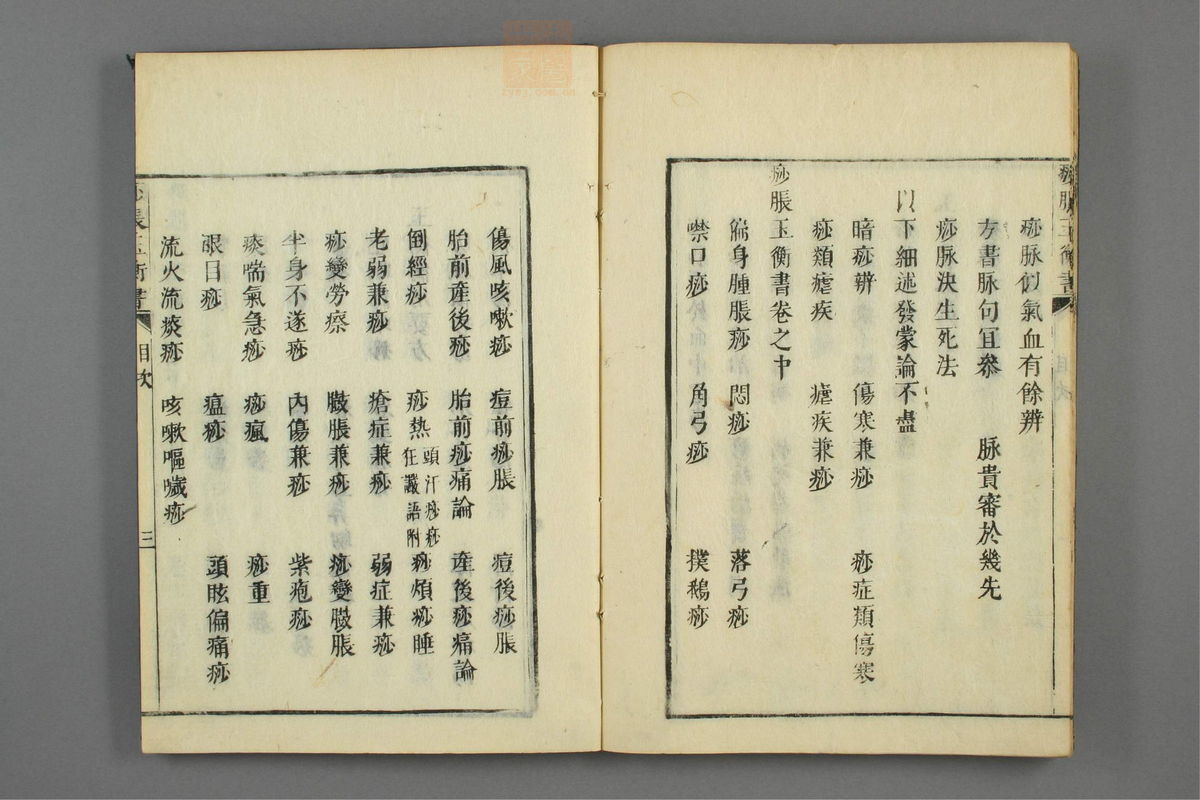 痧脹玉衡書
痧脉似氣血有餘辨
方書脉句宜叅　脉貴審於幾先
痧脉決生死法
以下細述發蒙論不盡
暗痧辨　傷寒兼痧　痧症類傷寒
痧類瘧疾　瘧疾兼痧
痧脹玉衡書卷之中
徧身腫脹痧　悶痧　落弓痧
噤口痧　角弓痧　撲鵝痧
傷風咳嗽痧　痘前痧脹　痘後痧脹
胎前產後痧　胎前痧痛論　產後痧痛論
倒經痧　痧熱　頭汗痧痧狂讝語附　痧煩痧睡
老弱兼痧　瘡症兼痧　弱症兼痧
痧變勞瘵　臌脹兼痧　痧變臌脹
半身不遂痧　內傷兼痧　紫疱痧
痰喘氣急痧　痧瘋　痧重
眼目痧　瘟痧　頭眩偏痛痧
流火流痰痧　咳嗽嘔噦痧
痧脹玉衡書　目次　三